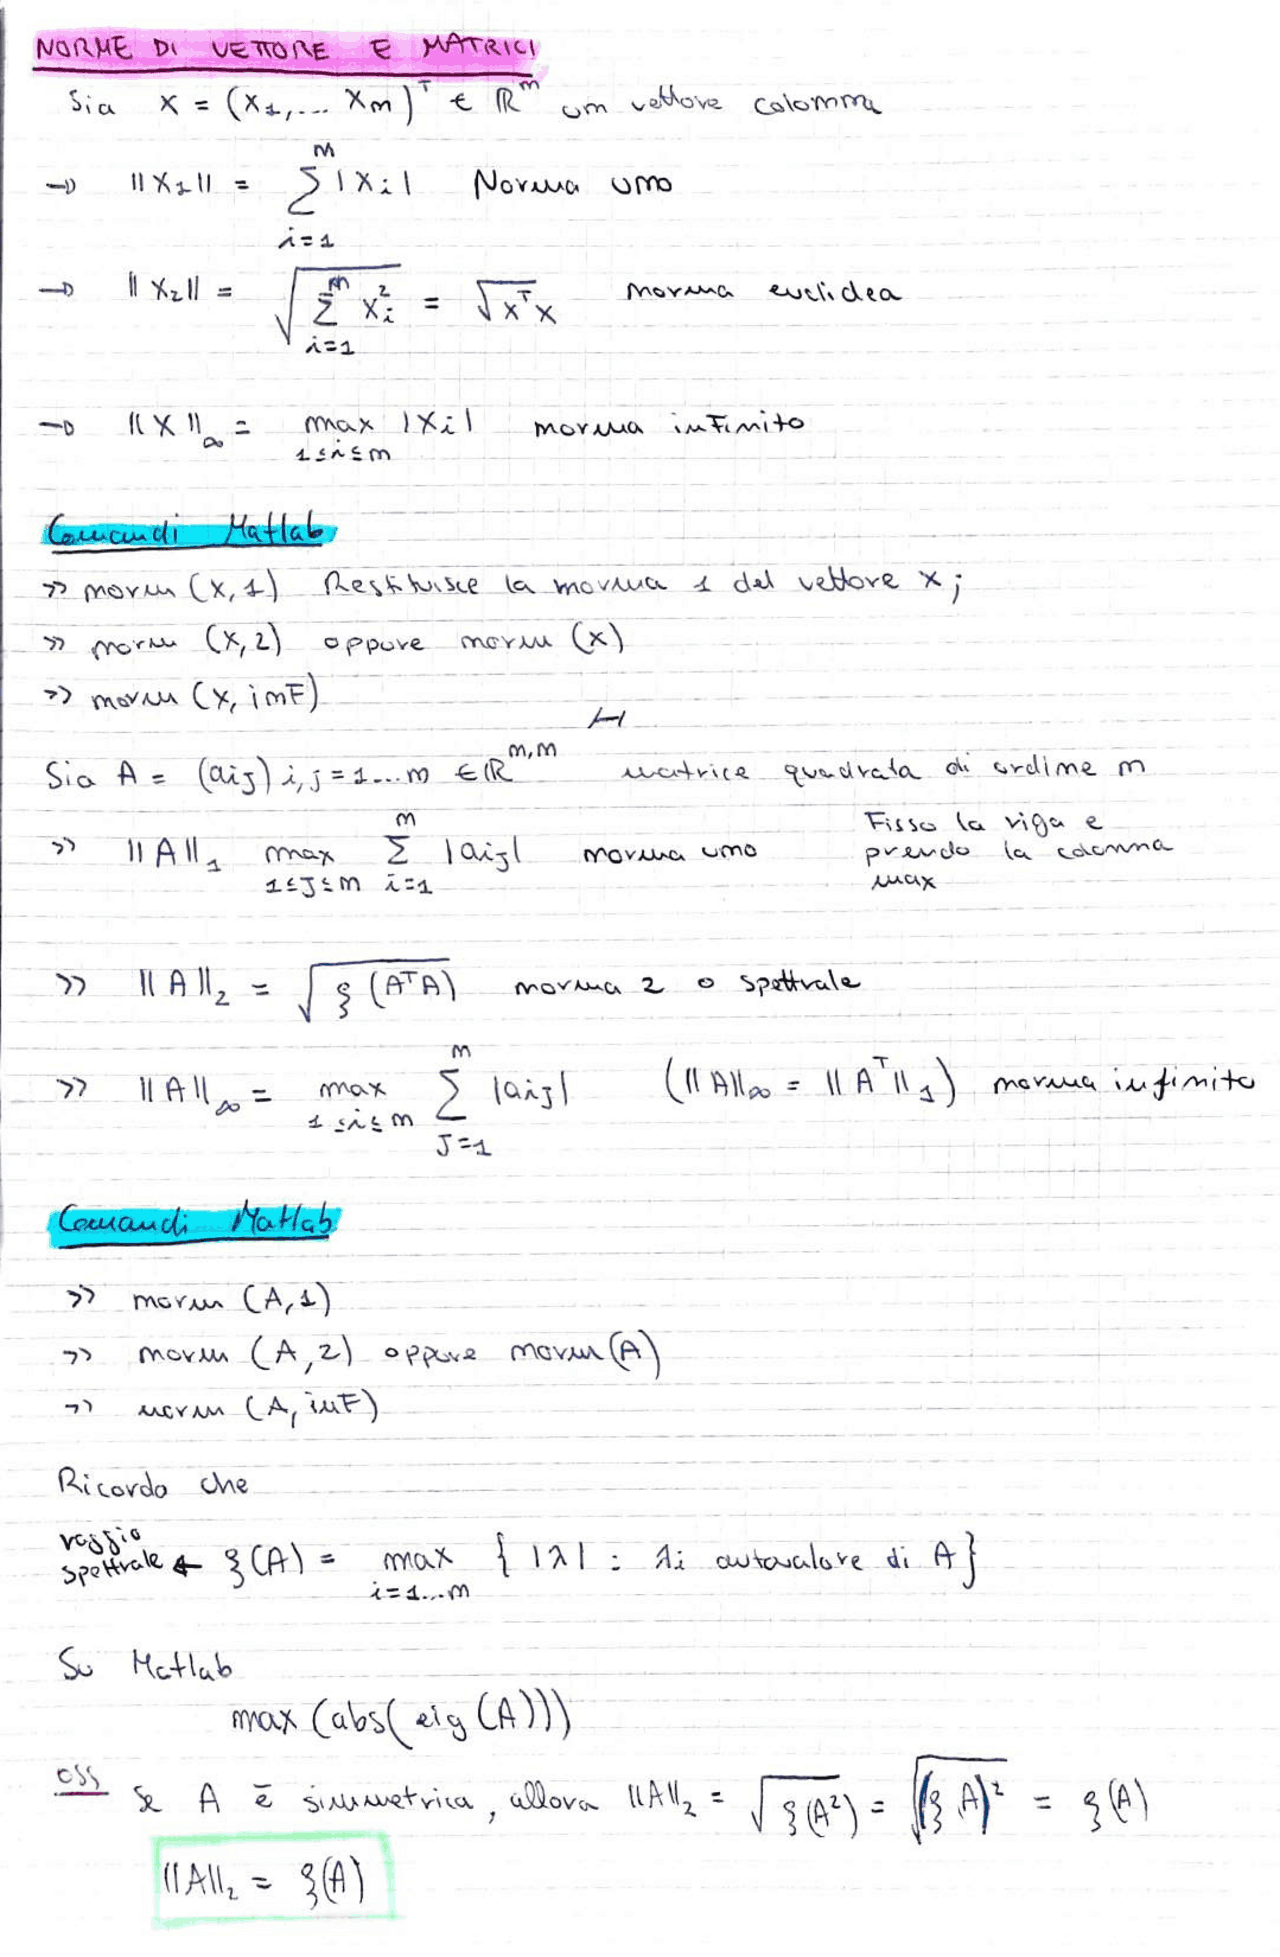 NORME DI VETTORE E MATRICI
Sia x = (x₁,... xₙ)ᵀ ∈ ℝⁿ un vettore colonna
→ ||x₁|| = ∑ᵢ₌₁ⁿ |xᵢ| Norma uno
→ ||x₂|| = √(∑ᵢ₌₁ⁿ xᵢ²) = √(xᵀx) norma euclidea
→ ||x||∞ = max 1≤i≤n |xᵢ| norma infinito
Comandi Matlab
>> norm (x,1) Restituisce la norma 1 del vettore x;
>> norm (x,2) oppure norm (x)
>> norm (x, inf)
Sia A = (aij) i,j = 1...n ∈ ℝⁿ,ⁿ matrice quadrata di ordine n
>> ||A||₁ max 1≤J≤n ∑ᵢ₌₁ⁿ |aij| norma uno
Fisso la riga e
prendo la colonna
max
>> ||A||₂ = √(ξ (AᵀA)) norma 2 o spettrale
>> ||A||∞ = max 1≤i≤n ∑ⱼ₌₁ⁿ |aij| (||A||∞ = ||Aᵀ||₁) norma infinito
Comandi Matlab
>> norm (A,1)
>> norm (A,2) oppure norm(A)
>> norm (A, inf)
Ricordo che
raggio
spettrale ← ξ(A) = max i=1...n { |λ| : λi autovalore di A}
Su Matlab
max (abs( eig (A)))
oss se A è simmetrica, allora ||A||₂ = √(ξ(A²)) = √((ξ A)²) = ξ(A)
||A||₂ = ξ(A)